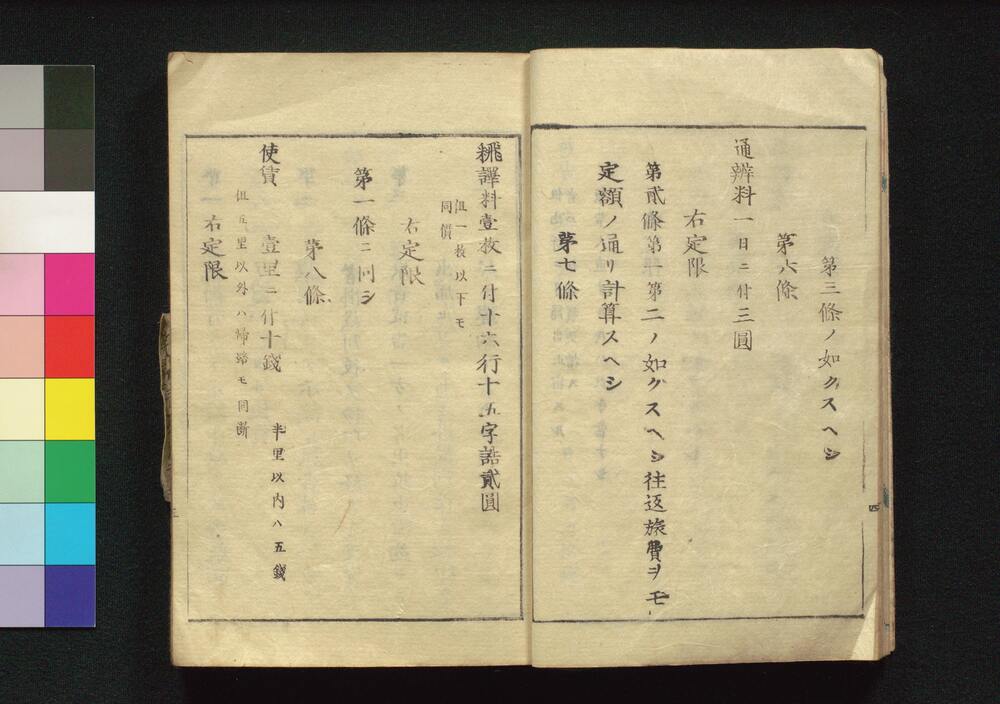 第三條ノ如クスヘシ
第六條
通辨料一日ニ付三圓
右定限
第貳條第一第二ノ如クスヘシ往返旅費ヲモ
定額ノ通リ計算スヘシ
第七條
飜譯料壹枚ニ付十六行十五字詰貳圓
但一枚以下モ
同價
右定限
第一條ニ同シ
第八條
使賃 壹里ニ付十錢 半里以内ハ五錢
但五里以外ハ歸路モ同斷
右定限
四